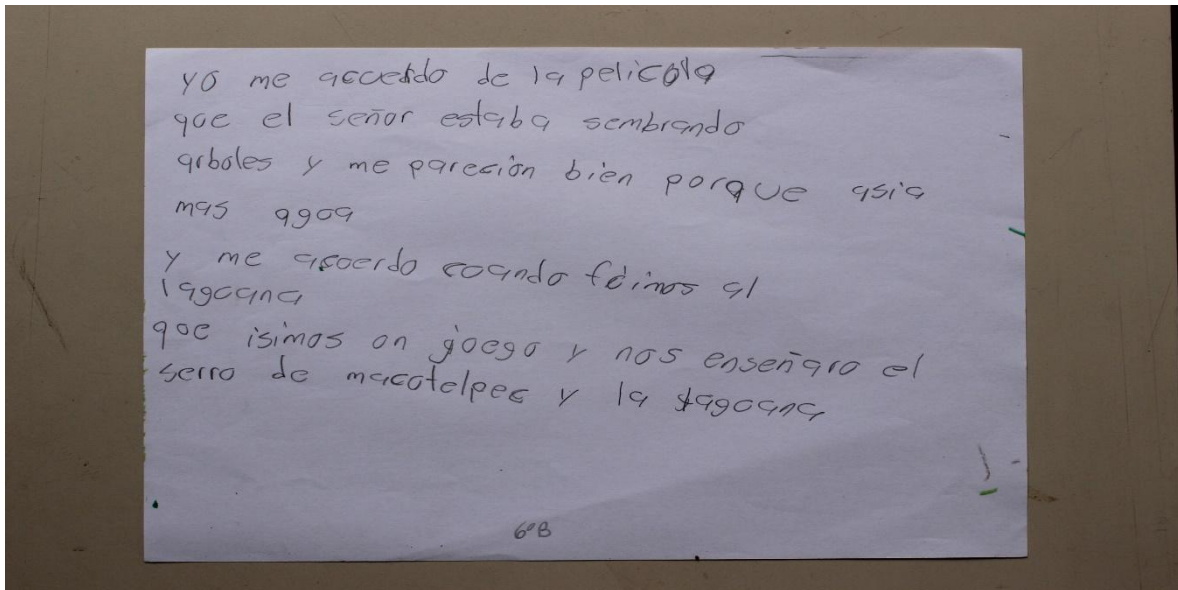 yo me acuerdo de la pelicola
que el señor estaba sembrando
arboles y me pareción bien porque asia
mas agoa
y me acoerdo coando foimos al
lagoana
que isimos on joego y nos enseñaro el
serro de macotelpec y la lagoana
6°B